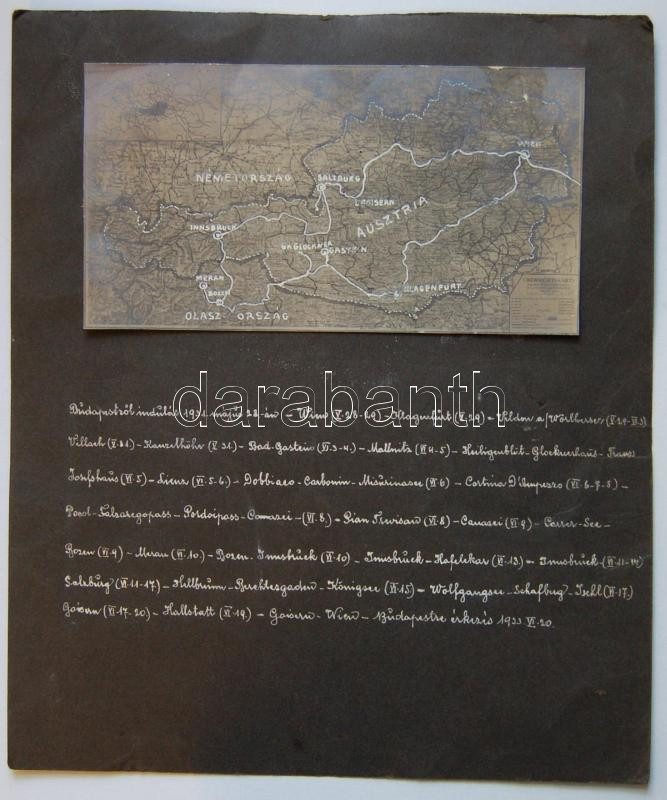 WIEN
SALZBURG
NÉMETORSZÁG
GOISERN
AUSZTRIA
INNSBRUCK
GR GLOCKNER
GASTEIN
MERAN
BOZEN
KLAGENFURT
OLASZ ORSZÁG
darabanth
Budapestről indulás május 28-án - Wien (V.28-29) - Klagenfurt (V.29) - Velden a/Wörthersee
Villach (V.31) - Kanzelhöhe (V.31.) - Bad-Gastein (VI.3-4.) - Mallnitz (VI.4-5) - Heiligenblut - Glocknerhaus - Franz
Josefshaus (VI.5) - Lienz (VI.5-6.) - Dobbiaco - Carbonin - Misurinasee (VI.6) - Cortina D'Ampezzo (VI.6-7-8) -
Pocol - Falzaregopass - Pordoipass - Canazei - (VI.8.) - Pian Trevisan (VI.8) - Canazei (VI.9) - Carrer-See -
Bozen (VI.9) - Meran (VI.10) - Bozen - Innsbruck (VI.10) - Innsbruck - Hafelekar (VI.13.) - Innsbruck
Salzburg (VI.11-17) - Hellbrunn - Berchtesgaden - Königsee (VI.15) - Wolfgangsee - Schafberg - Ischl (VI.17.)
Goisern (VI.17-20) - Hallstatt (VI.19) - Goisern - Wien - Budapestre érkezés 1933 VI.20.